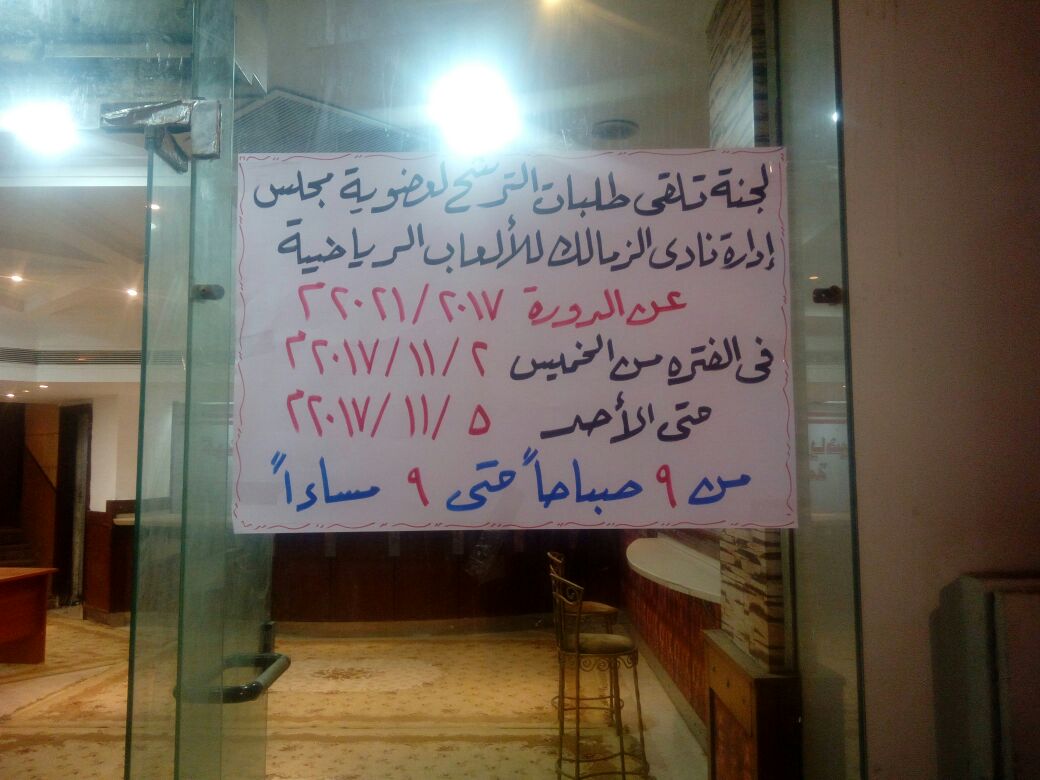 لجنة تلقى طلبات الترشح لعضوية مجلس
إدارة نادى الزمالك للألعاب الرياضية
عن الدورة ٢٠١٧/٢٠٢١م
فى الفتره من الخميس ٢/١١/٢٠١٧م
حتى الأحد ٥/١١/٢٠١٧م
من ٩ صباحاً حتى ٩ مساءاً